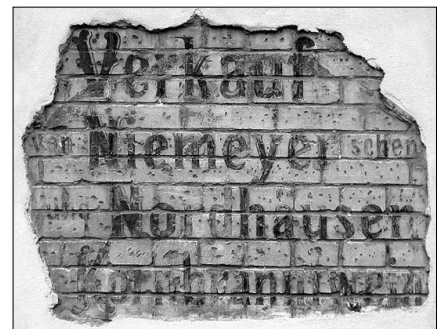 Verkauf
Niemeyer'schen
Nordhäuser
Kornbranntwein